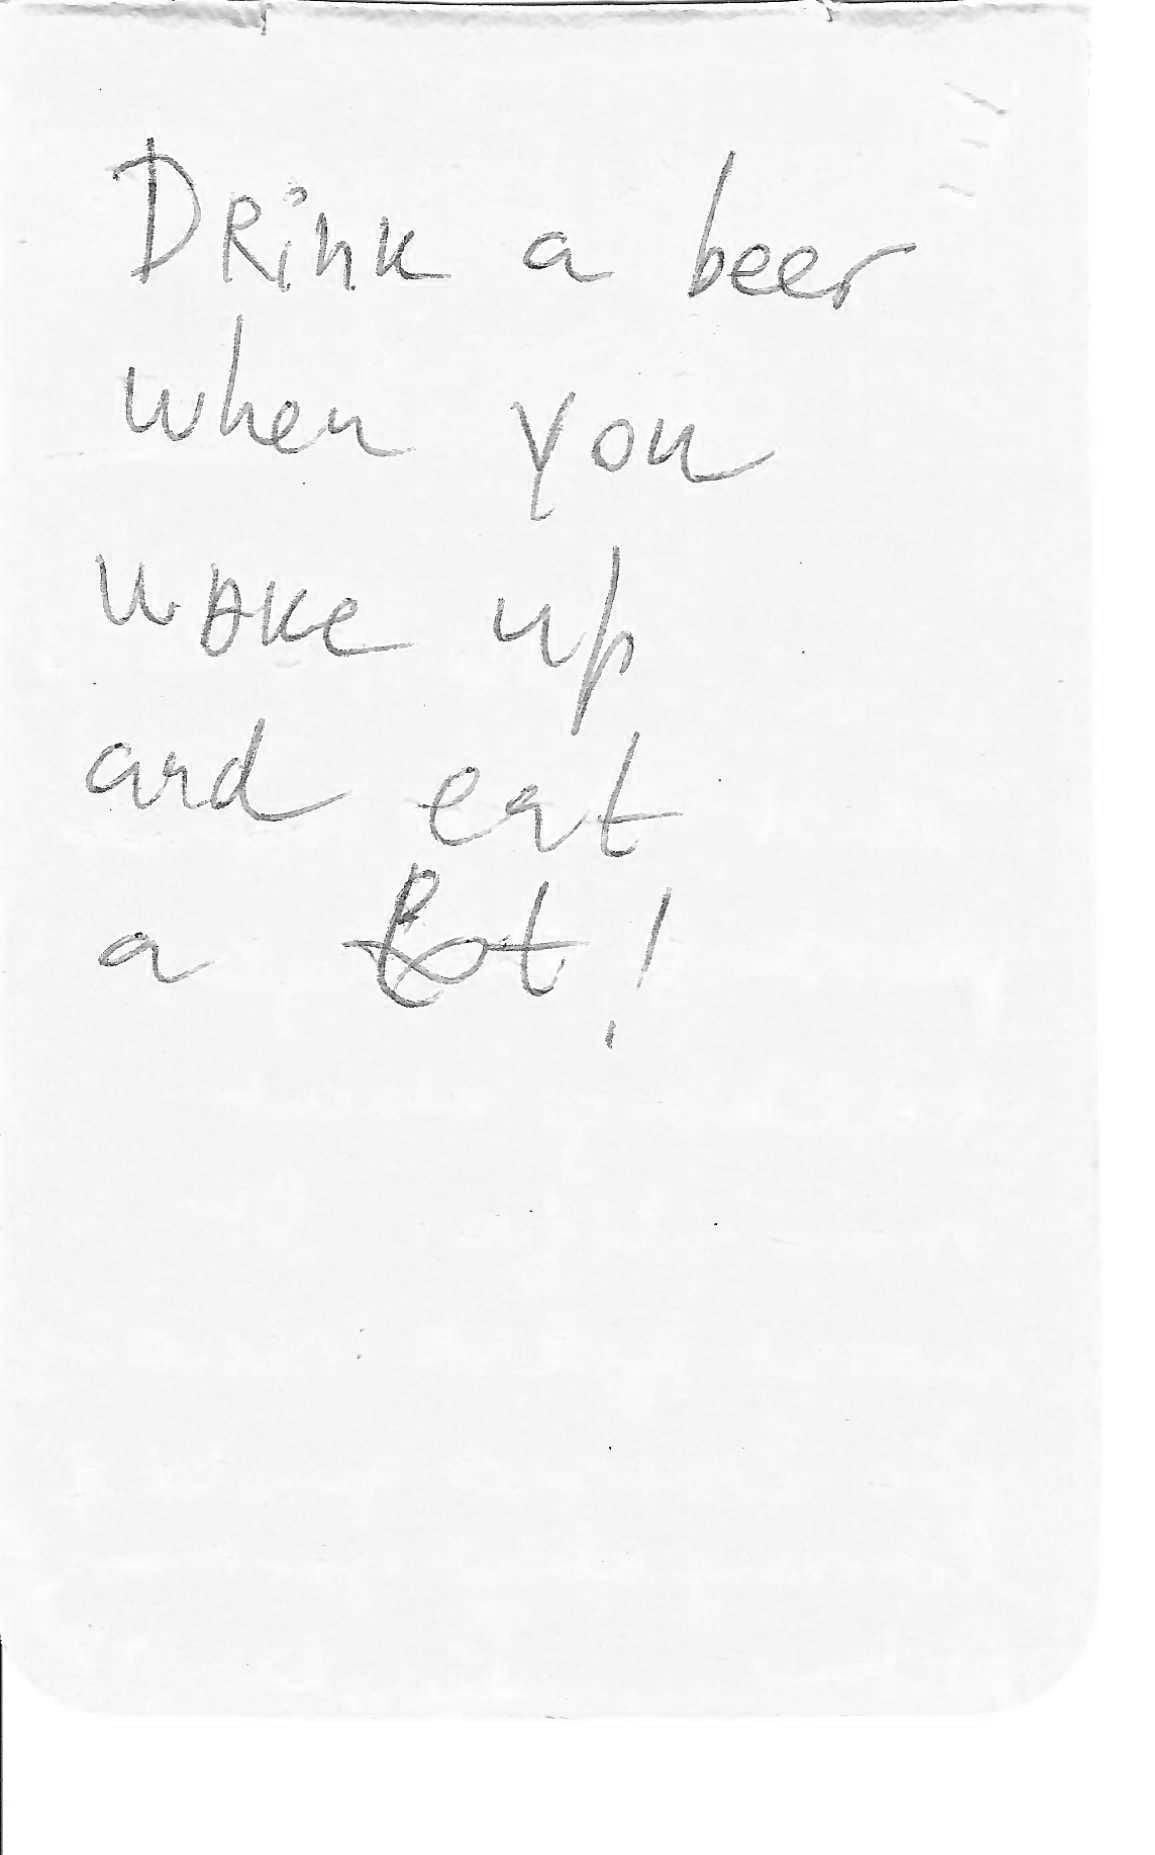 Drink a beer
when you
wake up
and eat
a lot!